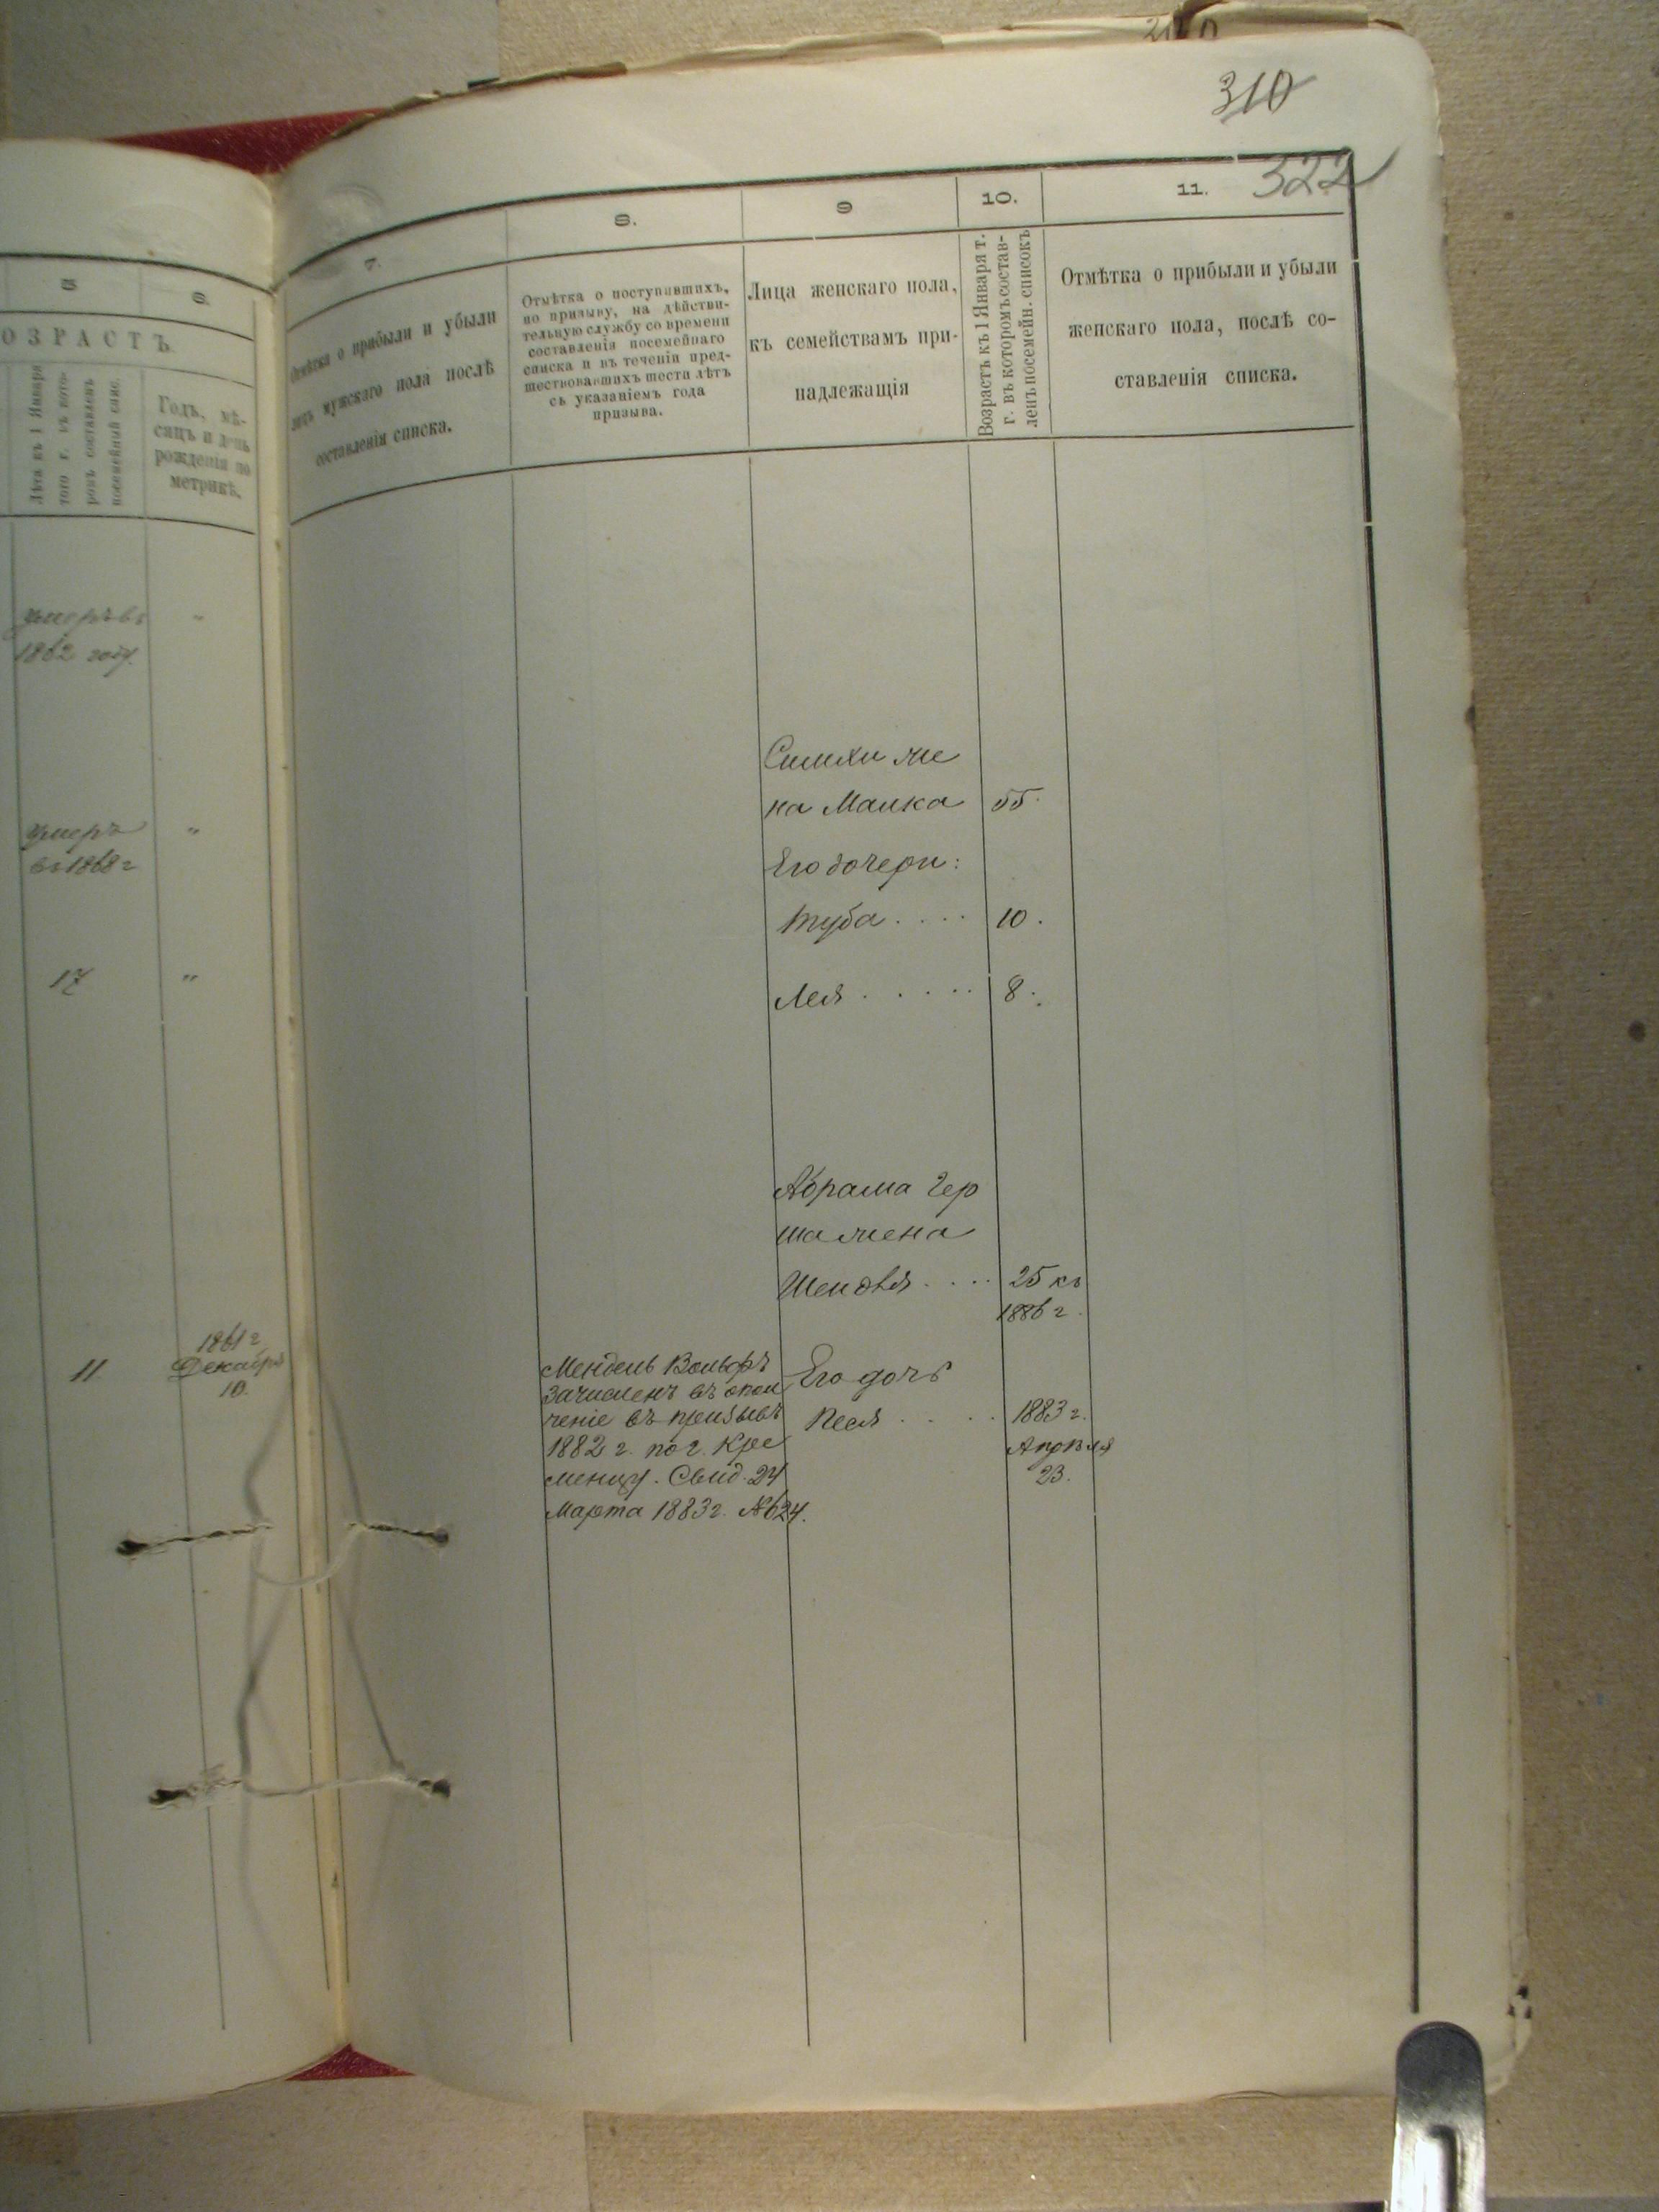 310
322
5
6.
7.
8.
9
10.
11.
ОЗРАСТЪ.
Лѣта къ 1 Января
того г. въ кото-
ромъ составленъ
посемейный спис.
Годъ, мѣ-
сяцъ и день
рожденія по
метрикѣ.
Отмѣтка о прибыли и убыли
лицъ мужскаго пола послѣ
составленія списка.
Отмѣтка о поступившихъ,
по призыву, на дѣйстви-
тельную службу со времени
составленія посемейнаго
списка и въ теченіи пред-
шествовавшихъ шести лѣтъ
съ указаніемъ года
призыва.
Лица женскаго пола,
къ семействамъ при-
надлежащія
Возрастъ къ 1 Января т.
г. въ которомъ состав-
ленъ посемейн. списокъ
Отмѣтка о прибыли и убыли
женскаго пола, послѣ со-
ставленія списка.
умеръ въ "
1862 году.
Симхи же
на Малка 55.
умеръ "
въ 1868 г
Его дочери:
Туба . . . . 10.
17 "
Лея . . . . . 8.
Абрама Гер
ша жена
Шендля . . . . 25 къ
1886 г.
11
1861 г
Декабря
10.
Мендель Вольфъ
зачисленъ въ опол
ченіе въ призывъ
1882 г. по г. Кре
менцу. Свид. 24
Марта 1883 г. № 624.
Его дочь
Песя . . . . 1883 г.
Апрѣля
23.